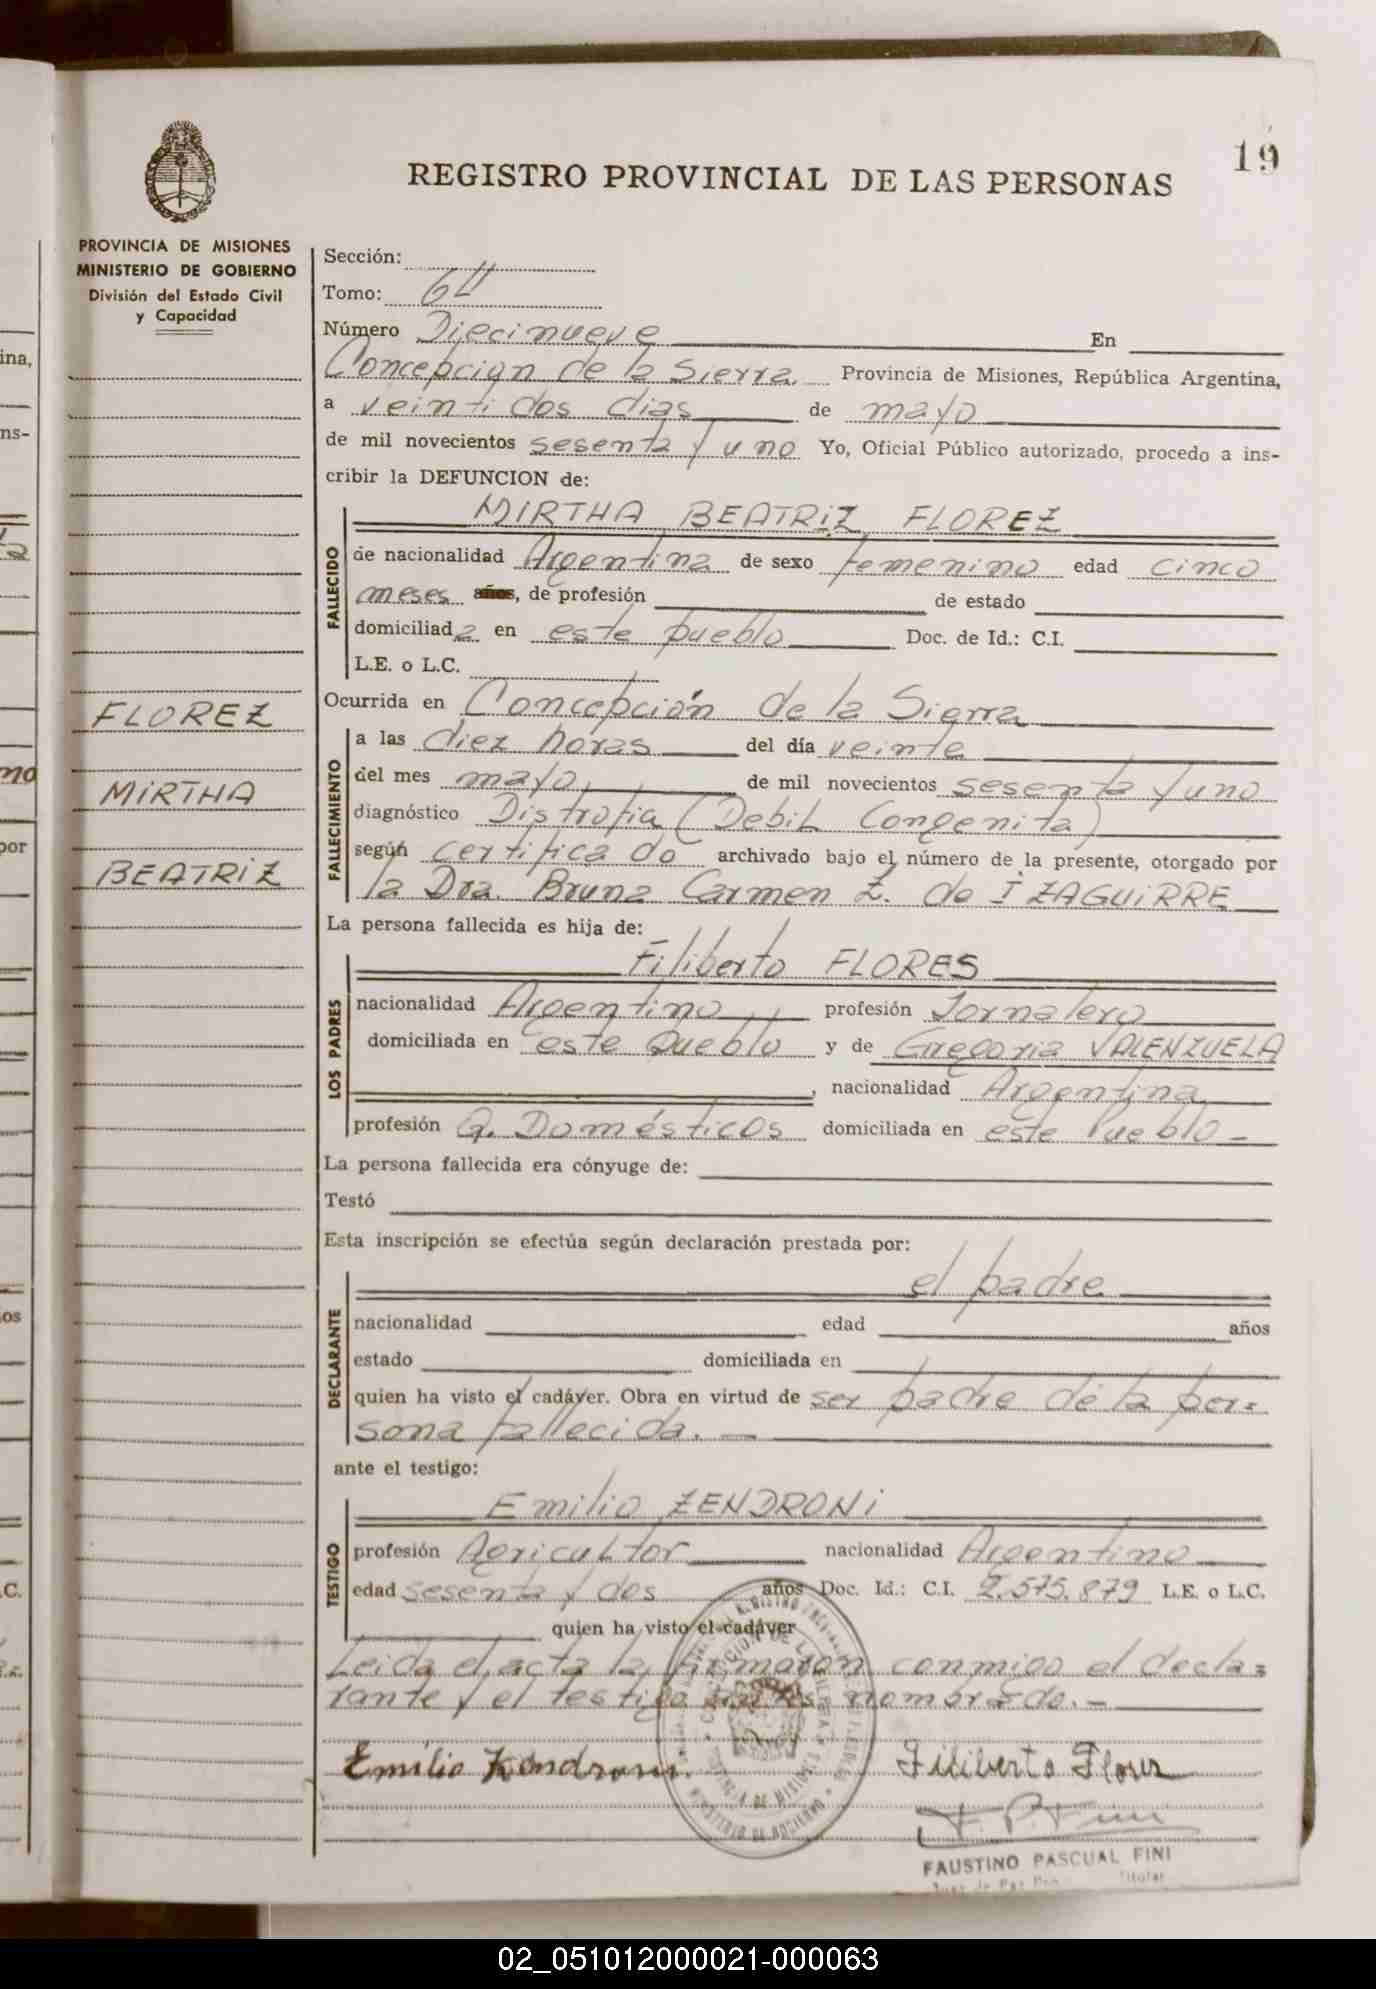 19
REGISTRO PROVINCIAL DE LAS PERSONAS
PROVINCIA DE MISIONES
MINISTERIO DE GOBIERNO
División del Estado Civil
y Capacidad
FLOREZ
MIRTHA
BEATRIZ
Sección:
Tomo:
Número Diecinueve En
Concepción de la Sierra. Provincia de Misiones, República Argentina,
a veinti dos dias de mayo
de mil novecientos sesenta y uno Yo, Oficial Público autorizado, procedo a ins-
cribir la DEFUNCION de:
MIRTHA BEATRIZ FLOREZ
FALLECIDO
de nacionalidad Argentina de sexo femenino edad cinco
meses años, de profesión de estado
domiciliada en este pueblo Doc. de Id.: C.I.
L.E. o L.C.
Ocurrida en Concepción de la Sierra
FALLECIMIENTO
a las diez horas del día veinte
del mes mayo de mil novecientos sesenta y uno
diagnóstico Distrofia (Debil Congenita)
según certificado archivado bajo el número de la presente, otorgado por
la Dra. Bruna Carmen Z. de IZAGUIRRE
La persona fallecida es hija de:
Filiberto FLORES
LOS PADRES
nacionalidad Argentino profesión Jornalero
domiciliada en este Pueblo y de Gregoria VALENZUELA
, nacionalidad Argentina
profesión Q. Domésticos domiciliada en este Pueblo -
La persona fallecida era cónyuge de:
Testó
Esta inscripción se efectúa según declaración prestada por:
el padre
DECLARANTE
nacionalidad edad años
estado domiciliada en
quien ha visto el cadáver. Obra en virtud de ser padre de la per=
sona fallecida. -
ante el testigo:
Emilio ZENDRONI
TESTIGO
profesión Agricultor nacionalidad Argentino
edad sesenta y dos años Doc. Id.: C.I. 2.575.879 L.E. o L.C.
quien ha visto el cadáver
Leida el acta la firmaron conmigo el decla=
rante y el testigo antes nombrado. -
Emilio Zendroni. Filiberto Florez
FAUSTINO PASCUAL FINI
Titular
02_051012000021-000063